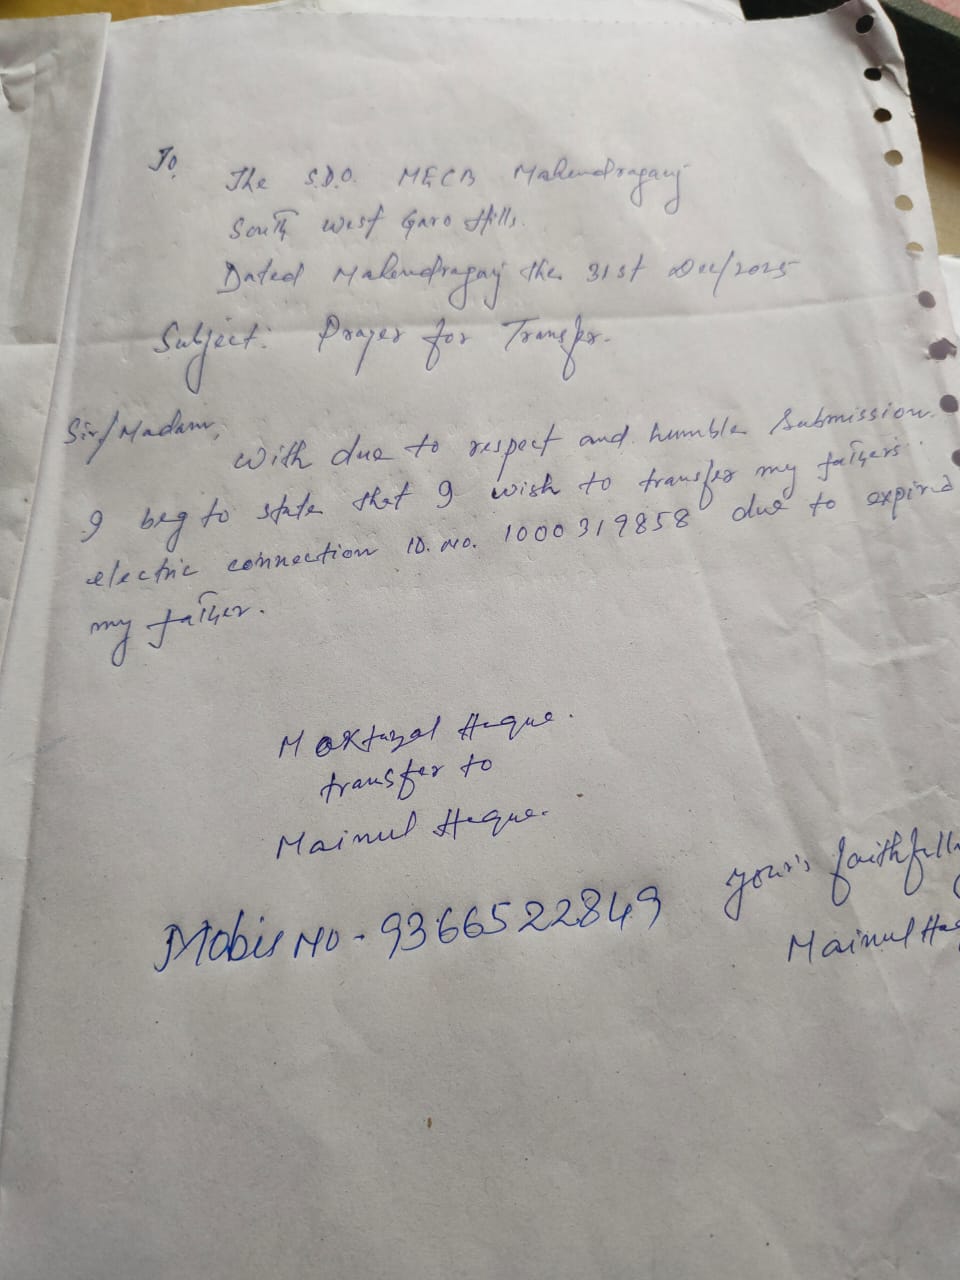 To,
The S.D.O. MECB Mahendraganj
South West Garo Hills.
Dated Mahendraganj the 31st Dec/2025
Subject: Prayer for Transfer.
Sir/Madam,
With due to respect and humble Submission.
I beg to state that I wish to transfer my father's
electric connection ID. No. 1000319858 due to expired
my father.
Moktazal Haque.
transfer to
Mainul Haque.
your's faithfull
Mainul
Mobil No - 9366522849